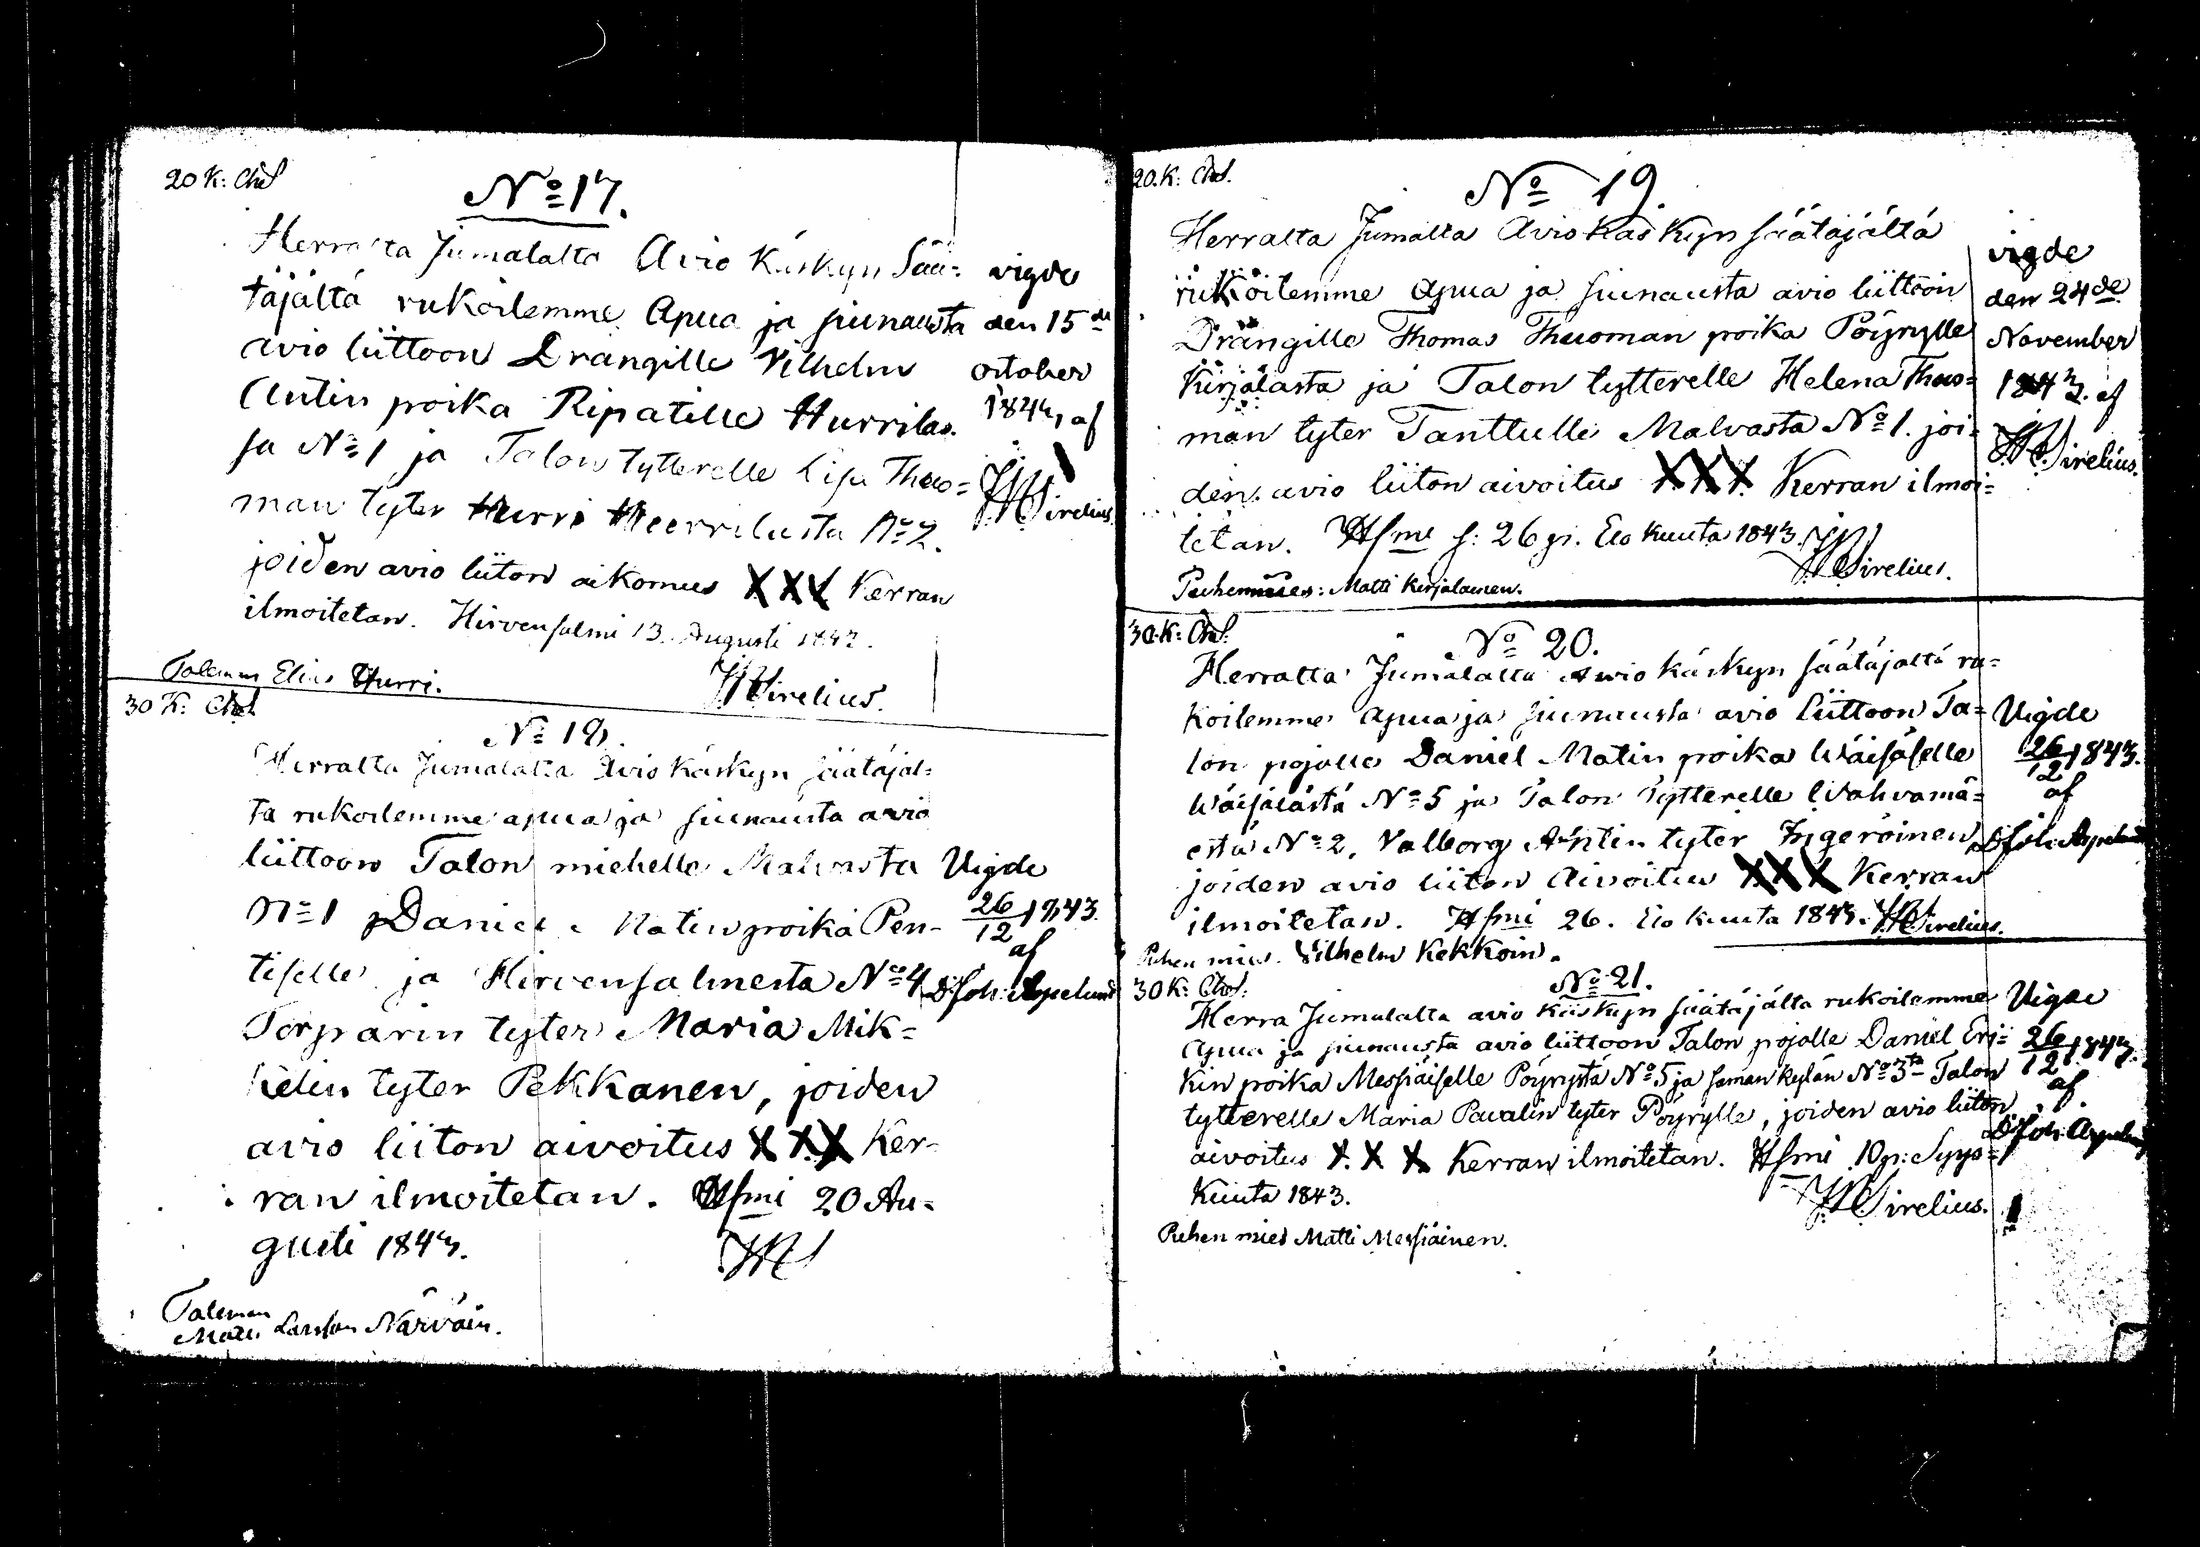 20 K: Chol
No 17.
Herralta Jumalalta Avio Käskyn Sää=
täjältä rukoilemme Apua ja siunausta
avio liittoon Drängille Vilhelm
Antin poika Ripatille Hurrilas=
sa No 1 ja Talon tytterelle Lisa Thuo=
man tyter Hurri Hurrilasta No 2.
joiden avio liiton aikomus XXX Kerran
ilmoitetan. Hirvensalmi 13. Augusti 1843.
Sirelius.
Taleman Elias Hurri.
vigde
den 15de
october
1843, af
Sirelius
30 K: Chol
No 18.
Herralta Jumalalta Avio käskyn säätäjäl=
tä rukoilemme apua ja siunausta avio
liittoon Talon miehelle Malvasta
No 1 Daniel Matin poika Pen-
tiselle ja Hirvensalmesta No 4
Torparin tyter Maria Mik=
kelin tyter Pekkanen, joiden
avio liiton aivoitus XXX Ker-
ran ilmoitetan. Hsmi 20 Au=
gusti 1843.
Taleman
Matts Larsson Närväin.
Vigde
26/12 1843.
af
Joh: Aspelund
20.K: Chol.
No 19.
Herralta Jumalta Avio Käskyn säätäjältä
rukoilemme Apua ja siunausta avio liittoon
Drängille Thomas Thuoman poika Pöyrylle
Kirjalasta ja Talon tytterelle Helena Thuo=
man tyter Tanttulle Malvasta No 1. joi=
den avio liiton aivoitus X.X.X. Kerran ilmoi=
tetan. Hsmi s: 26 p. Elo kuuta 1843.
Sirelius.
Puhemies: Matti Kirjalainen.
vigde
den 24de
November
1843. af
Sirelius.
30.K: Chol:
No 20.
Herralta Jumalalta Avio käskyn säätäjältä ru=
koilemme apua ja siunausta avio liittoon Ta=
lon pojalle Daniel Matin poika Wäisäselle
Wäisälästä No 5 ja Talon tytterelle Wahvamä=
estä No 2, Valborg Antin tyter Ingeröinen,
joiden avio liiton Aivoitus XXX Kerran
ilmoitetan. Hsmi 26. Elo kuuta 1843. Sirelius.
Puhen mies. Vilhelm Kekkoin.
Vigde
26/12 1843.
af
Joh: Aspelund
30 K: Chol:
No 21.
Herra Jumalalta avio käskyn säätäjältä rukoilemme
Apua ja siunausta avio liittoon Talon pojalle Daniel Eri=
kin poika Messiäiselle Pöyrystä No 5 ja saman kylän No 3ta Talon
tytterelle Maria Paualin tyter Pöyrylle, joiden avio liiton
aivoitus X. X X Kerran ilmoitetan. Hsmi 10 p: Syys=
kuuta 1843.
Sirelius.
Puhen mies Matti Messiäinen.
Vigde
26/12 1843.
af.
Joh: Aspelund